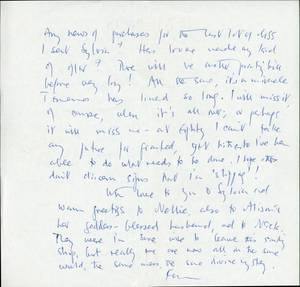 Any news of purchases for the last lot of diss
I sent Sylvia? Has Lovane made any kind
of offer? There will be another
before very long! All the same, it's a miracle
Temenos has lived so long. I will miss it
of course, when it's all over, or perhaps
it will miss me - at eighty I can't take
any future for granted, yet hitherto I've been
able to do what needs to be done. I hope
don't discern signs that I'm "slipping"!
With love to you & Sylvia and
warm greetings to Nellie, also to
her goddess-blessed husband, and to Nick.
They were in time use to leave this
ship, but really we are now all in the same
world, the same the same divine